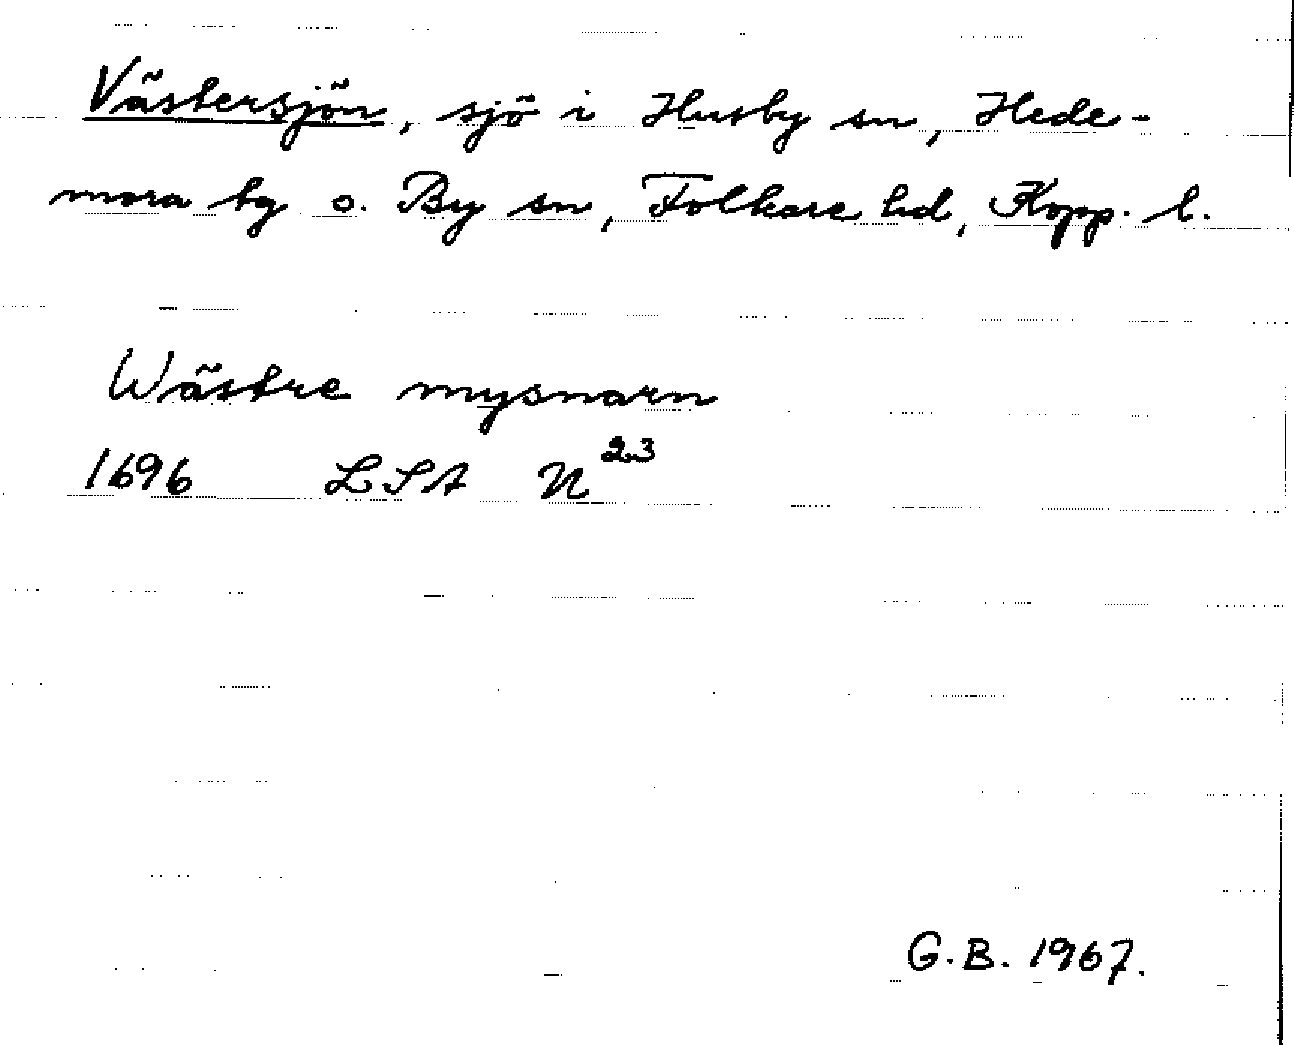 Västersjön, sjö i Husby sn, Hede-
mora tg o. By sn, Folkare hd, Kopp. l.
Wästre mysnarn
1696 LSA N 23
G.B. 1967.